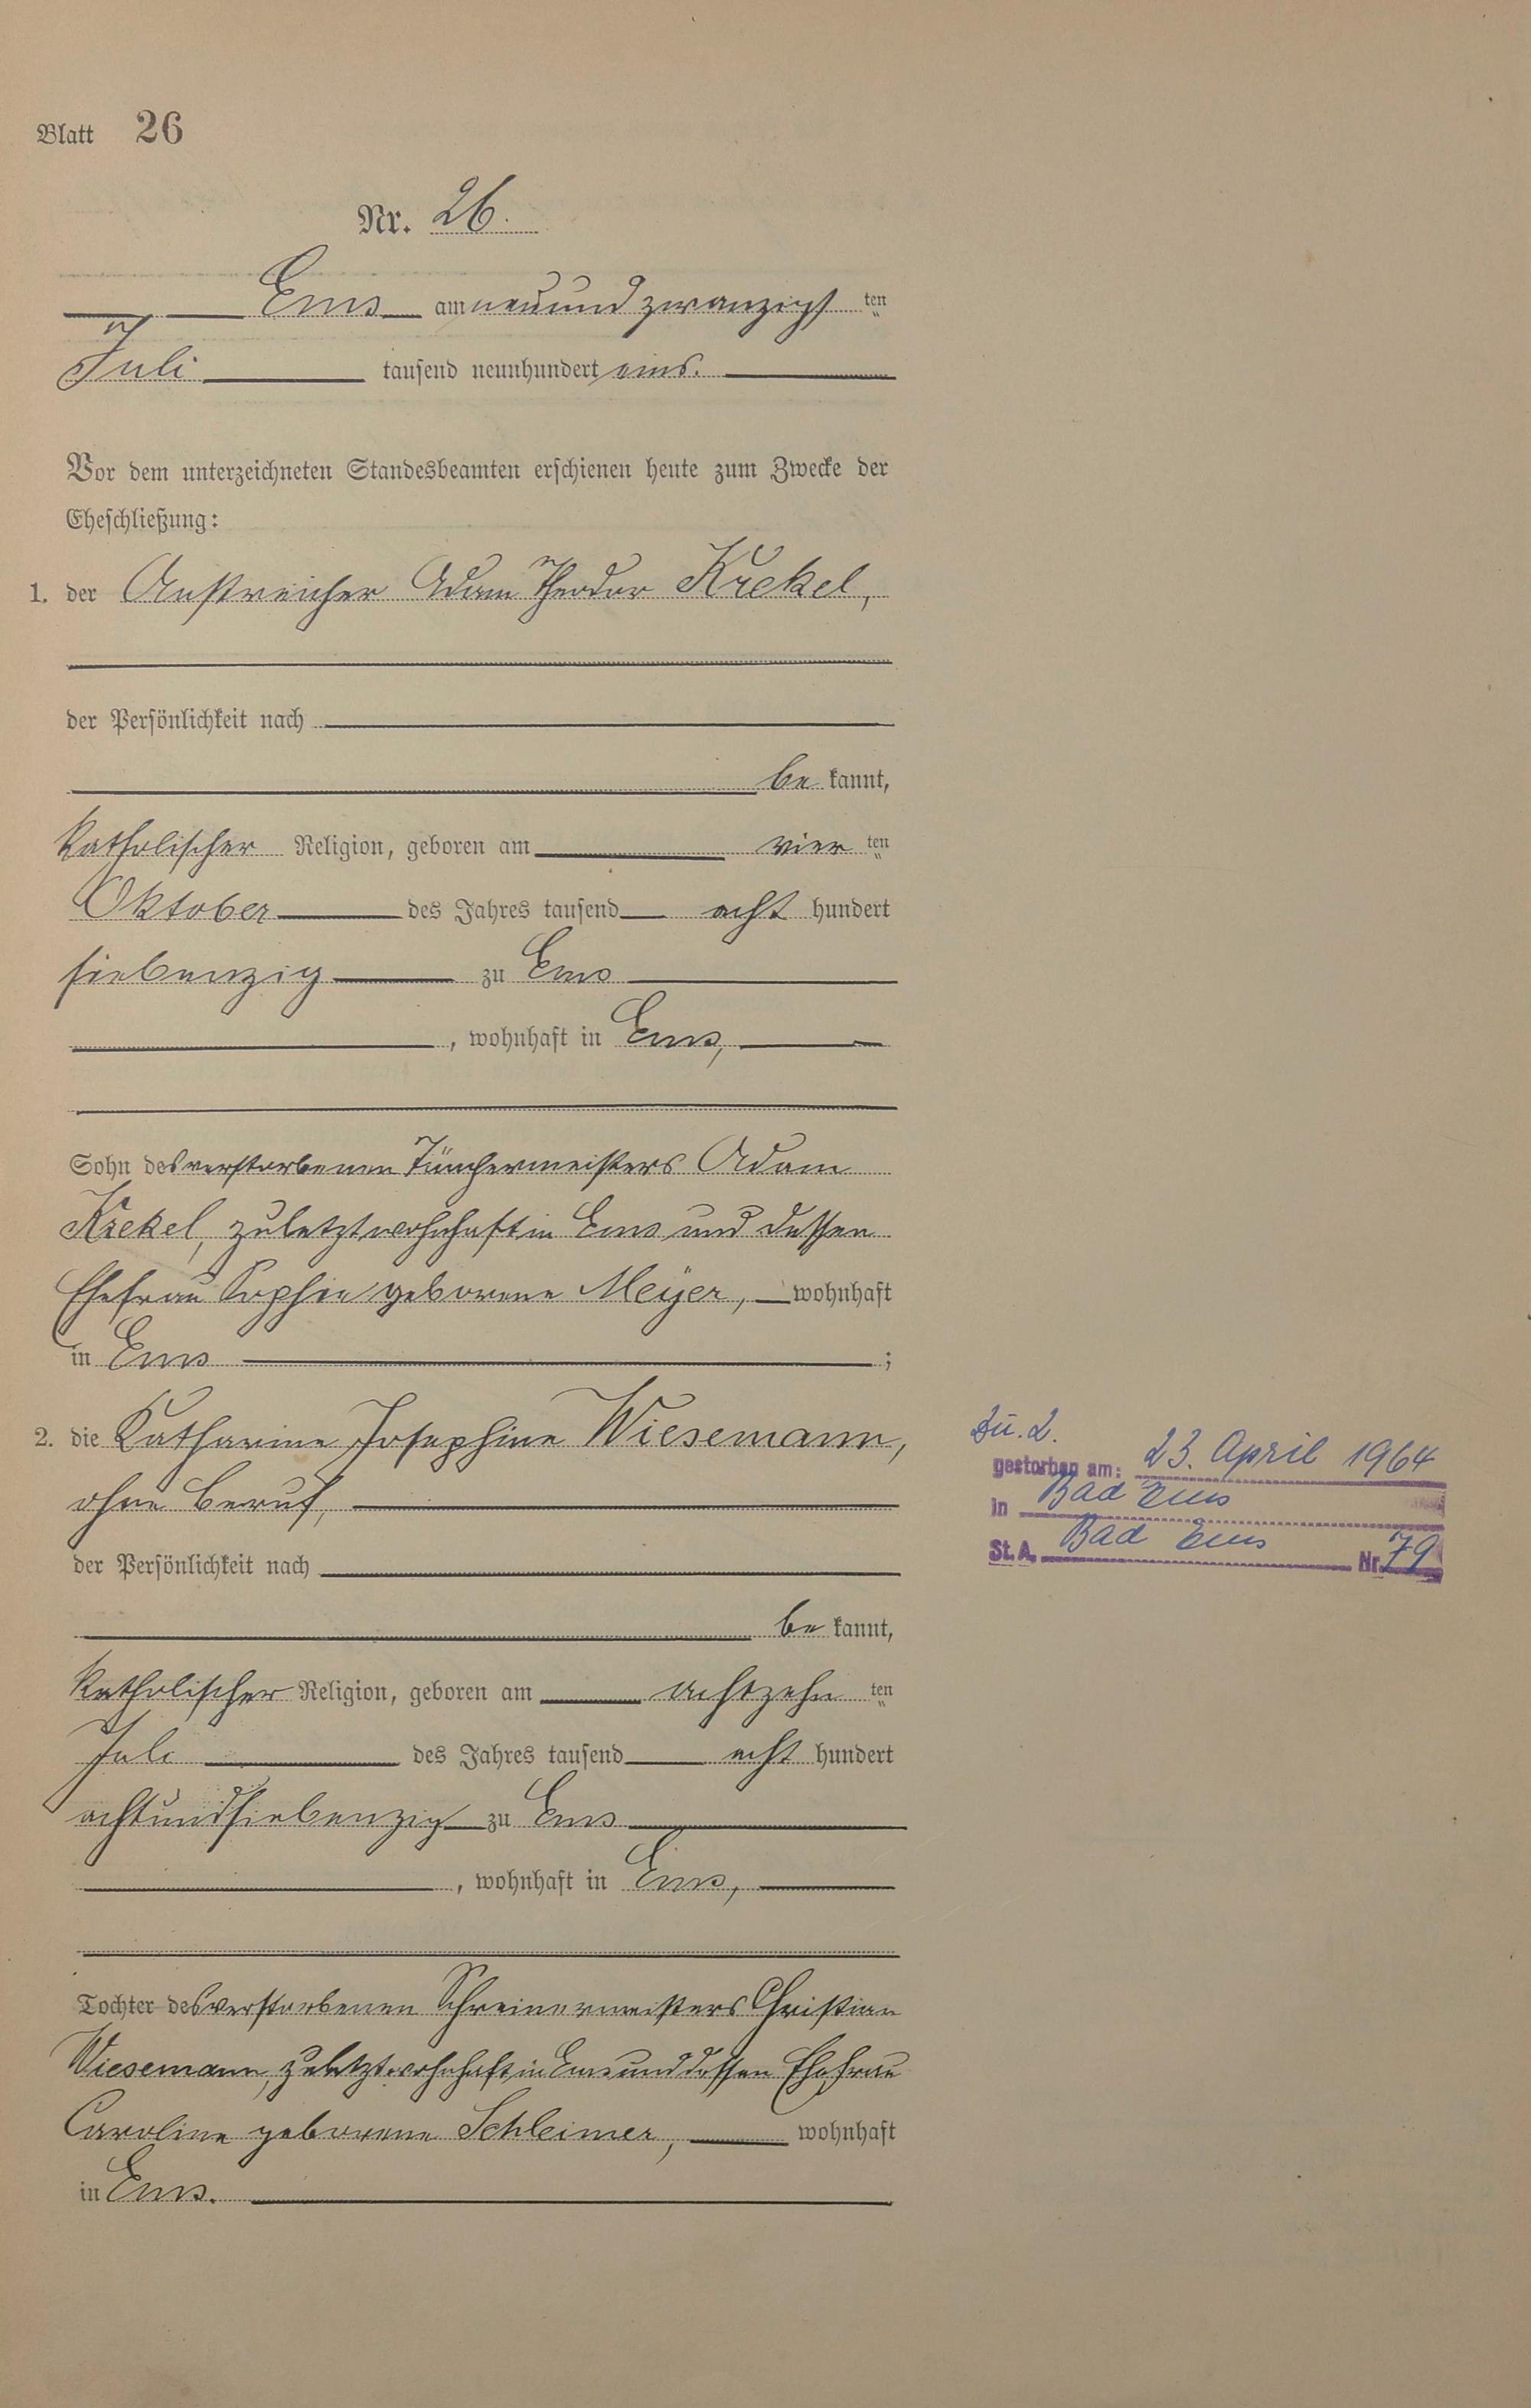 Blatt 26
Nr. 26.
Ems am neunundzwanzigsten
Juli tausend neunhundert eins.
Vor dem unterzeichneten Standesbeamten erschienen heute zum Zwecke der
Eheschließung:
1. der Anstreicher Adam Theodor Krekel,
der Persönlichkeit nach
be kannt,
katholischer Religion, geboren am vier ten
Oktober des Jahres tausend acht hundert
siebenzig zu Ems
, wohnhaft in Ems,
Sohn des verstorbenen Tünchermeisters Adam
Krekel, zuletzt wohnhaft in Ems und dessen
Ehefrau Sophie geborene Meyer, wohnhaft
in Ems ;
2. die Katharine Josephine Wiesemann,
ohne Beruf,
der Persönlichkeit nach
be kannt,
katholischer Religion, geboren am achtzehn ten
Juli des Jahres tausend acht hundert
achtundsiebenzig zu Ems
, wohnhaft in Ems,
Tochter des verstorbenen Schreinermeisters Christian
Wiesemann, zuletzt wohnhaft in Ems und dessen Ehefrau
Caroline geborene Schleimer, wohnhaft
in Ems.
Zu. 2.
gestorben am: 23. April 1964
in Bad Ems
St. A. Bad Ems Nr. 79